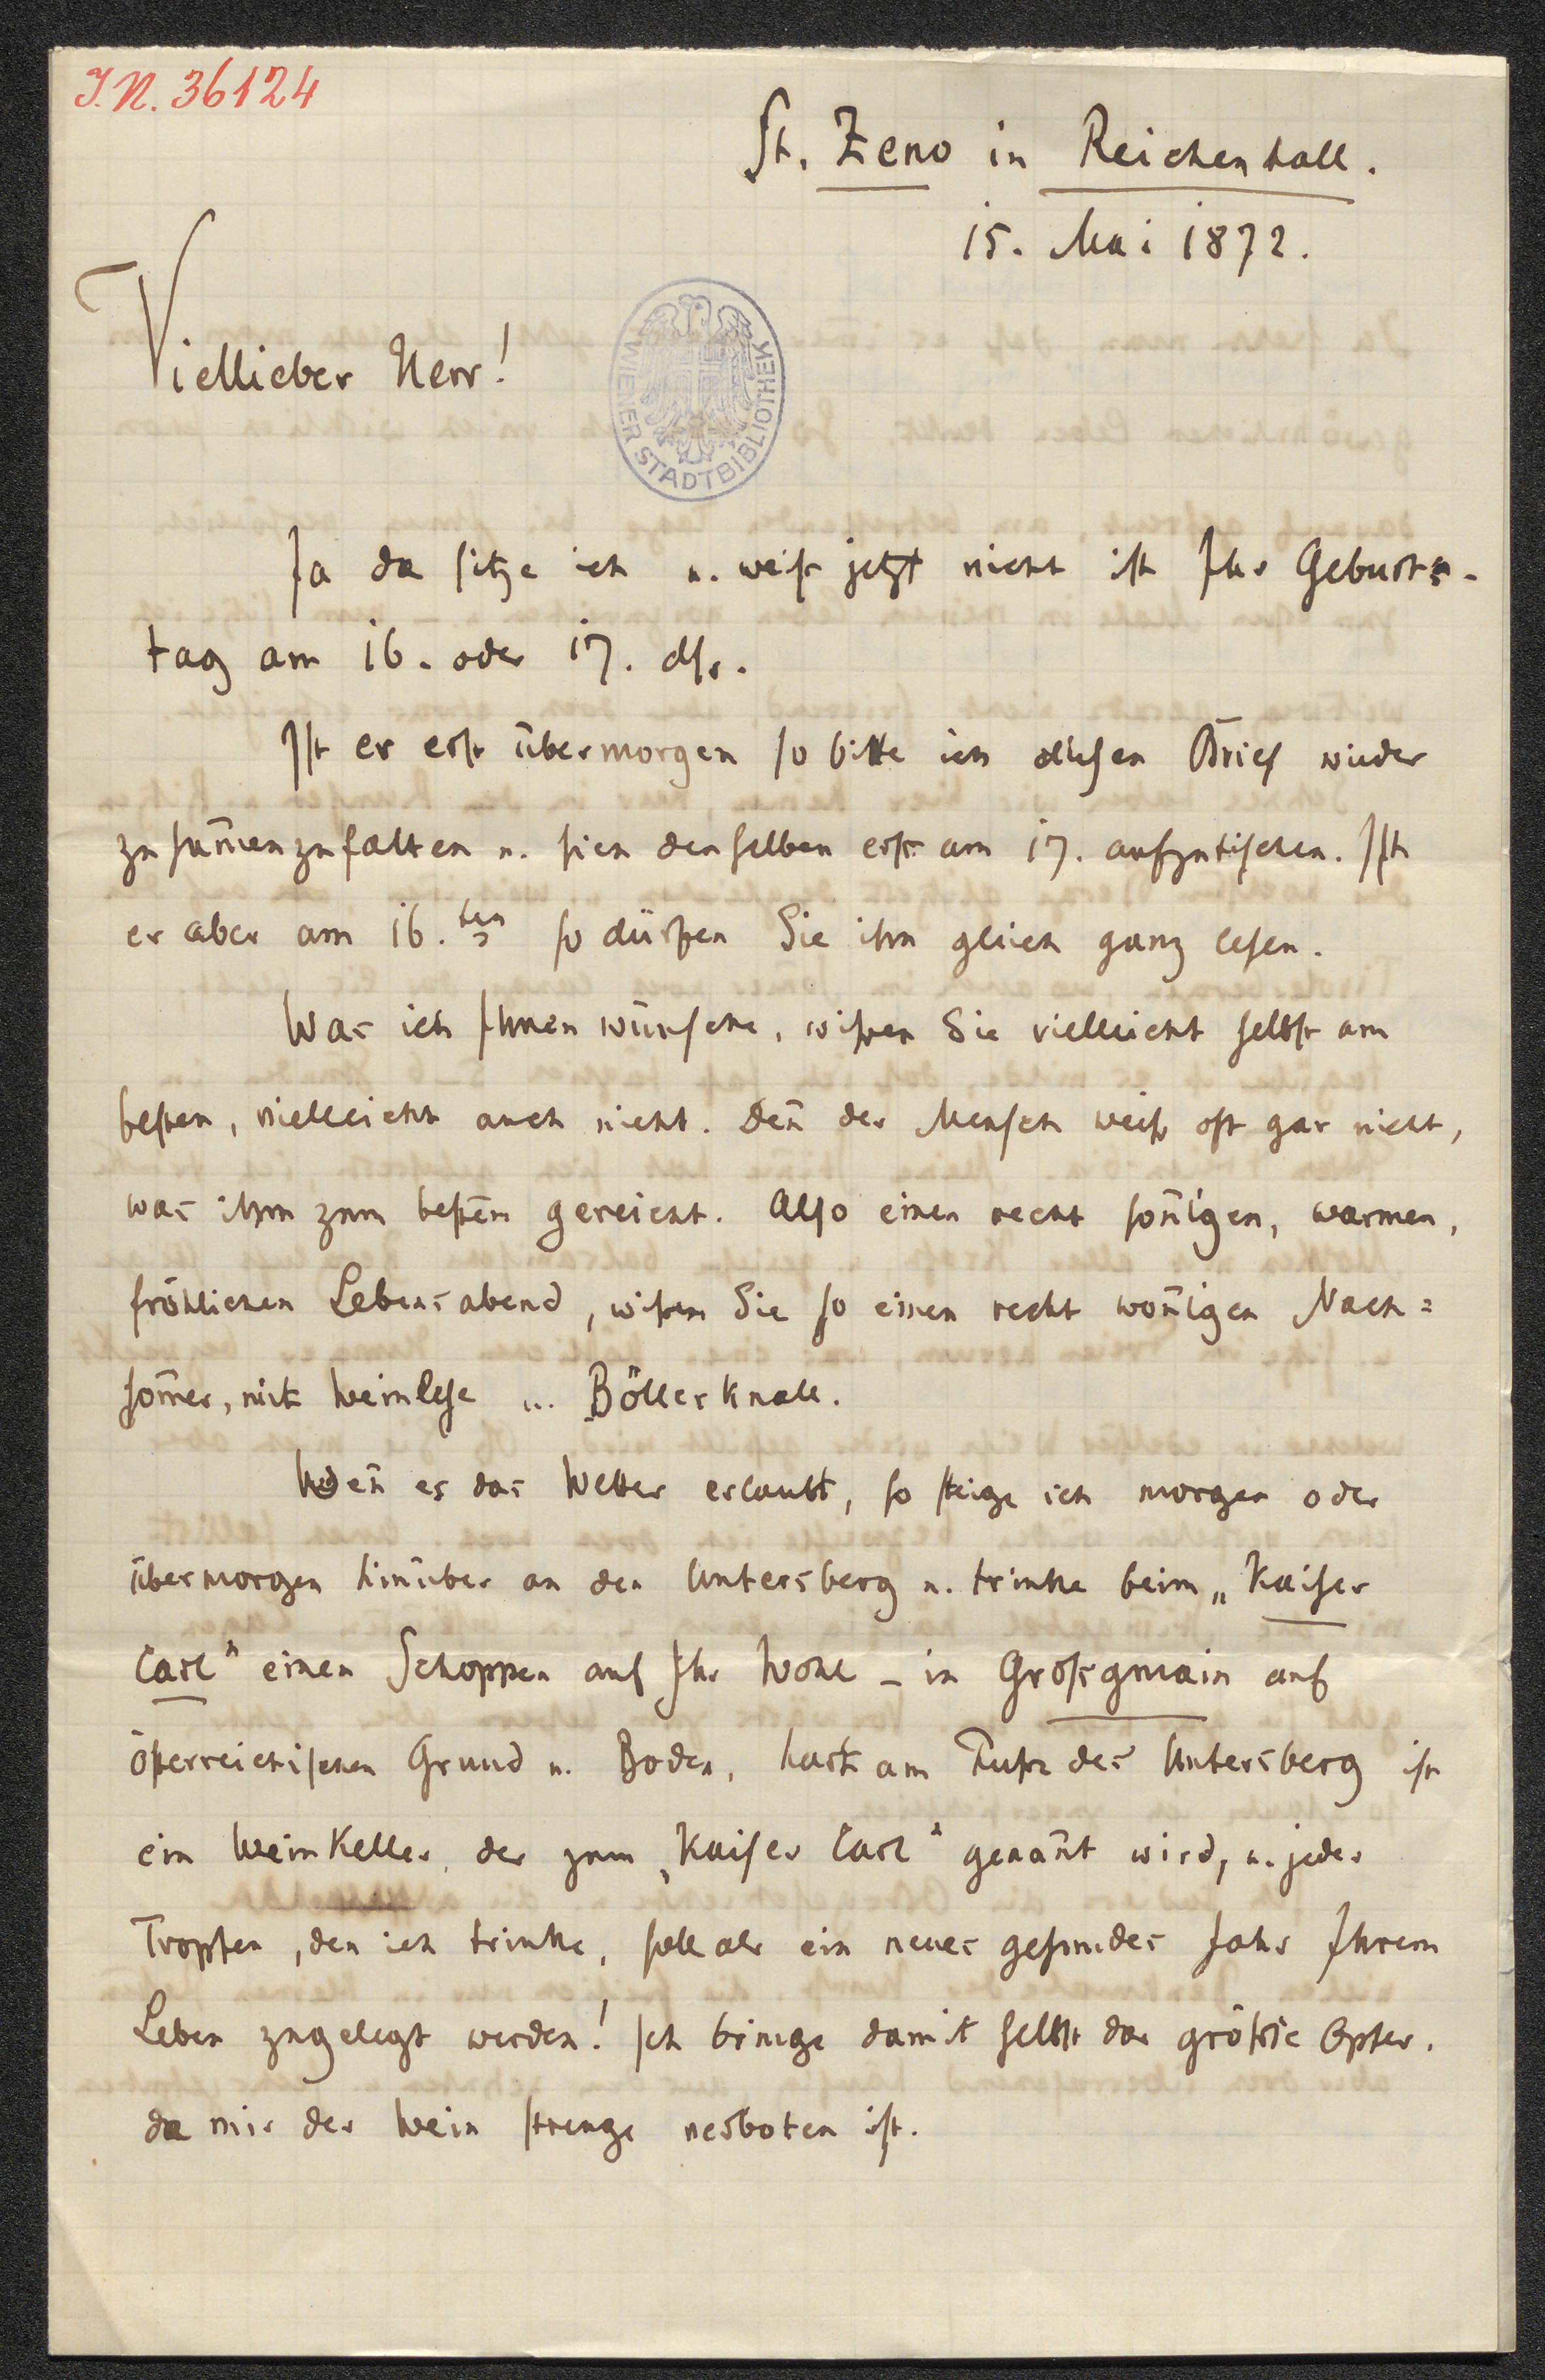 I.N. 36124
St. Zeno in Reichenhall.
15. Mai 1872.
Viellieber Herr!
WIENER STADTBIBLIOTHEK
Ja da sitze ich u. weiß jetzt nicht ist Ihr Geburts-
tag am 16. oder 17. dſs.
Ist er erst übermorgen so bitte ich diesen Brief wieder
zusam̄enzufalten u. sich denselben erst am 17. aufzutischen. Ist
er aber am 16.ten so dürfen Sie ihn gleich ganz lesen.
Was ich Ihnen wünsche, wißen Sie vielleicht selbst am
besten, vielleicht auch nicht. Den̄ der Mensch weiß oft gar nicht,
was ihm zum besten gereicht. Also einen recht son̄igen, warmen,
fröhlichen Lebensabend, wißen Sie so einen recht won̄igen Nach=
som̄er, mit Weinlese u. Böllerknall.
Wen̄ es das Wetter erlaubt, so steige ich morgen oder
übermorgen hinüber an den Untersberg u. trinke beim „Kaiser
Carl“ einen Schoppen auf Ihr Wohl – in Großgmain auf
österreichischen Grund u. Boden, hart am Fuße des Untersberg ist
ein Weinkeller, der zum „Kaiser Carl“ genan̄t wird, u. jeder
Tropfen, den ich trinke, soll als ein neues gesundes Jahr Ihrem
Leben zugelegt werden! Ich bringe damit selbst das größte Opfer,
da mir der Wein strenge verboten ist.